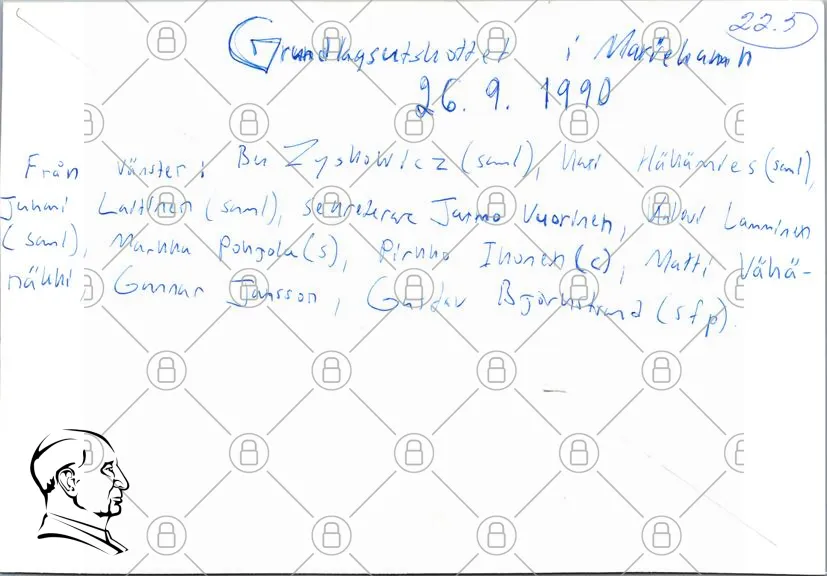 22.5
Grundlagsutskottet i Mariehamn
26.9.1990
Från vänster: Ben Zyskowicz (saml), Kari Häkämies (saml),
Juhani Laitinen (saml), sekreterare Jarmo Vuorinen, Lamminen
(saml), Markku Pohjola (s), Pirkko Ikonen (c), Matti Vähä-
näkki, Gunnar Jansson, Gustav Björkstrand (sfp)